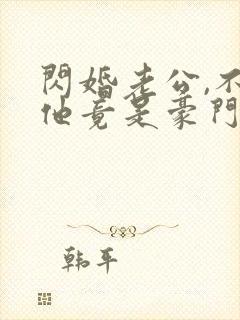 閃婚老公,不
他竟是豪門
韩平